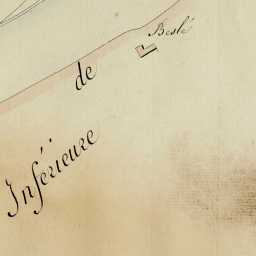 Beslé
de
Inférieure